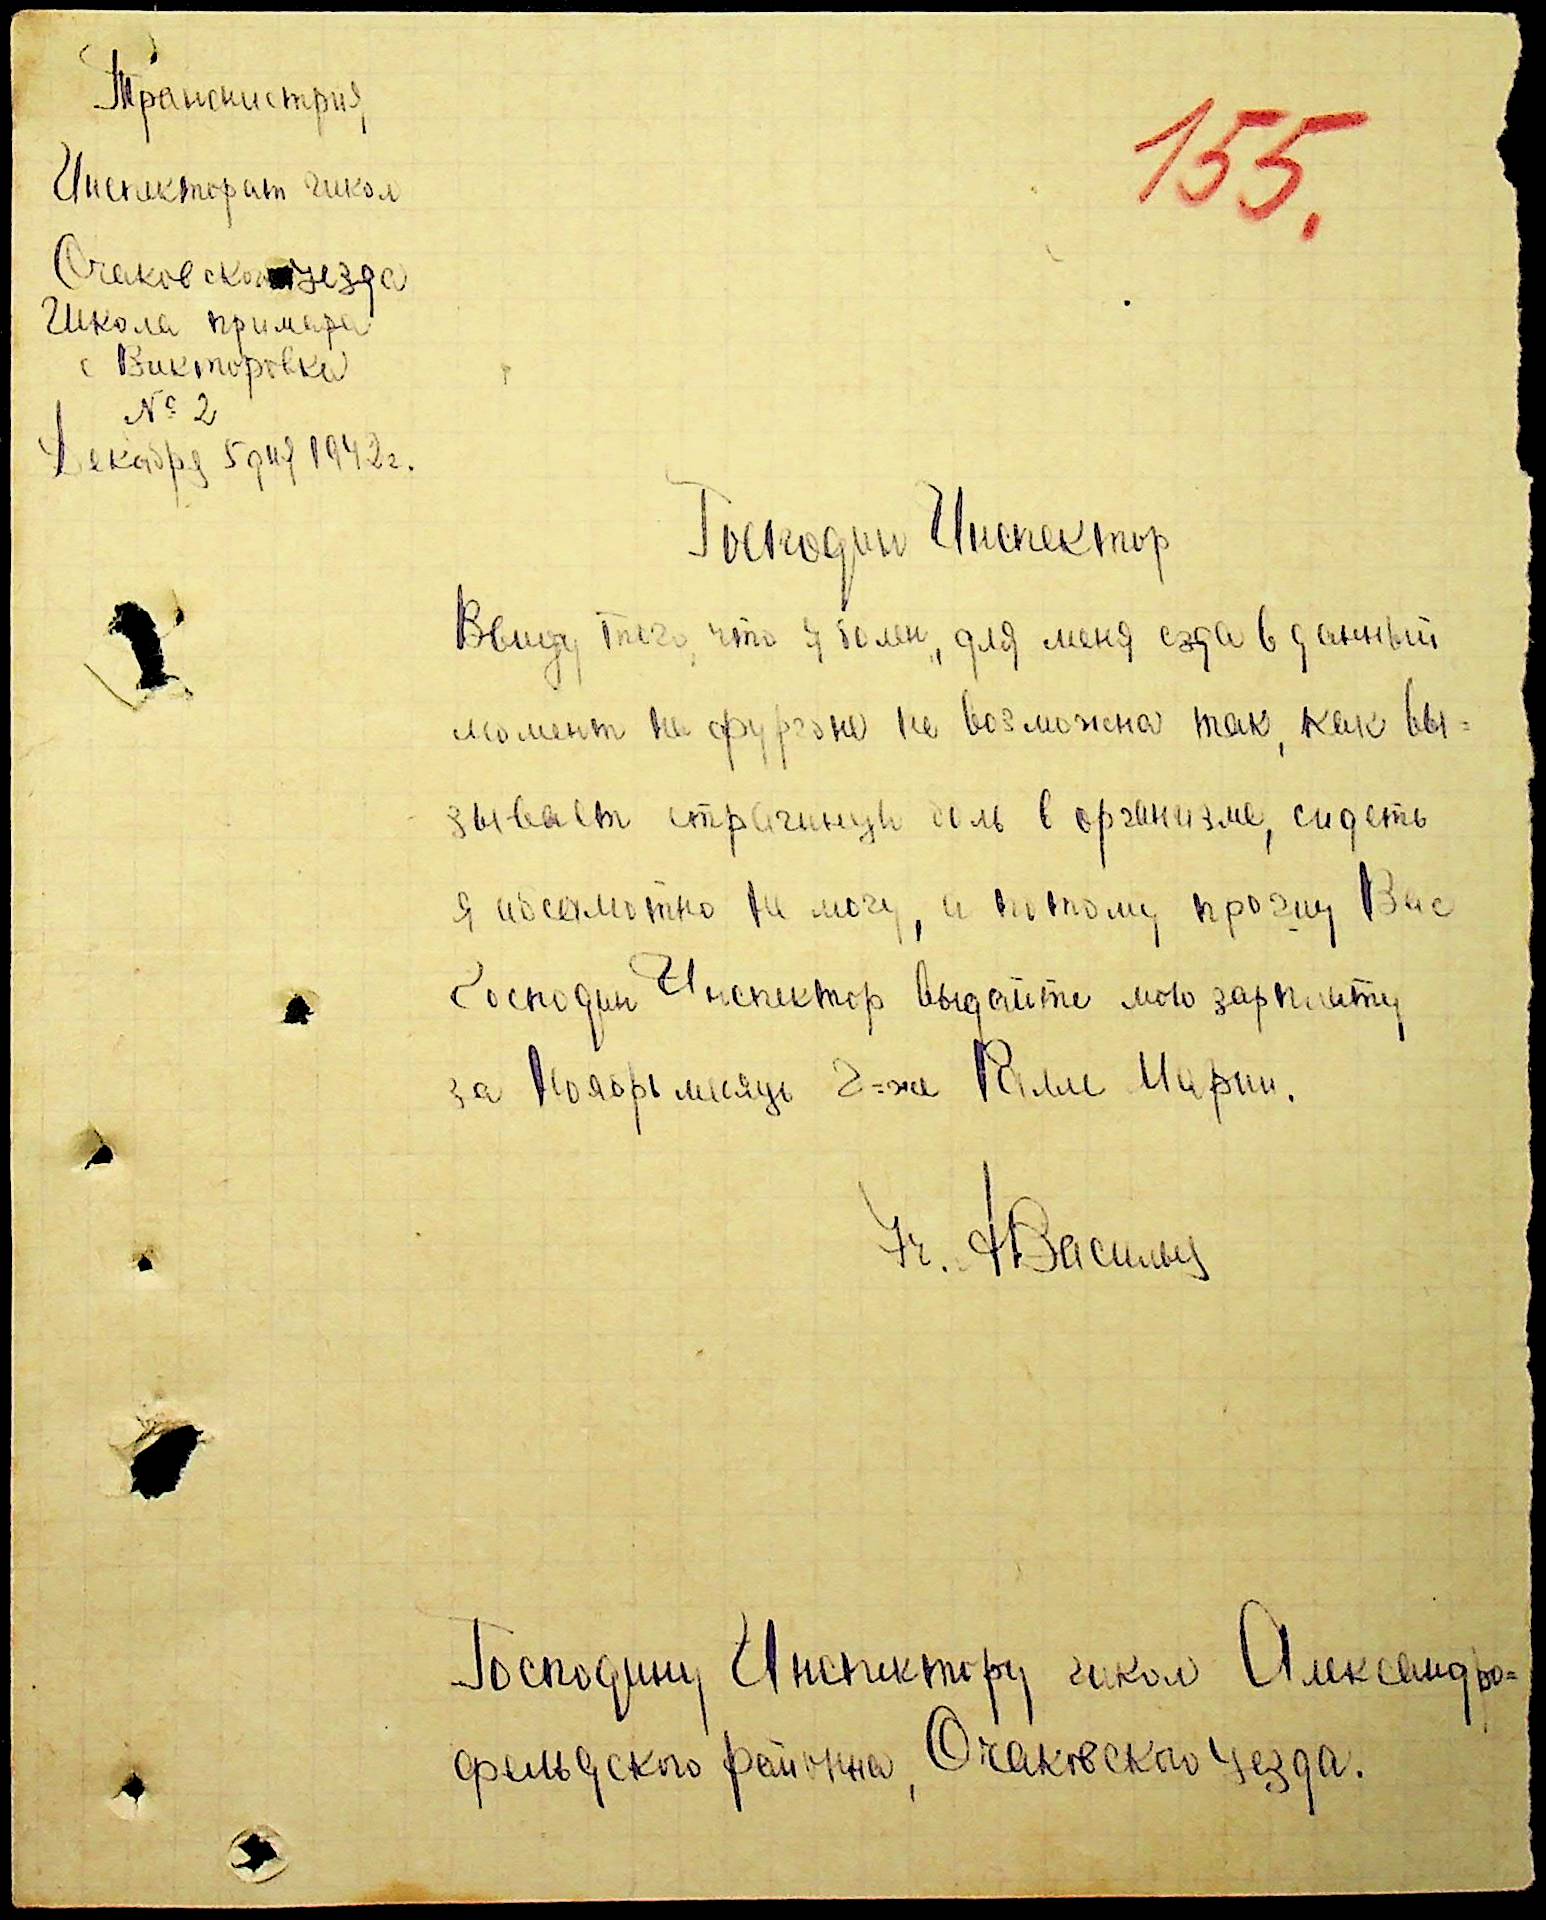 Транснистрия
155.
Инспекторат школ
Очаковского уезда
Школа примара
с Викторовка
№ 2
Декабря 5 дня 1942 г.
Господин Инспектор
Ввиду того, что я болен, для меня езда в данный
момент на фургоне не возможна так, как вы=
зывает страшную боль в организме, сидеть
я абсалютно не могу, и потому прошу Вас
Господин Инспектор выдайте мою зарплату
за Ноябрь месяць г=же Марии.
Уч. А
Господину Инспектору школ Александро=
фельдского района, Очаковского уезда.